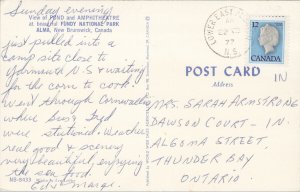 Sunday evening
View of POND and AMPHITHEATRE
at beautiful FUNDY NATIONAL PARK
ALMA, New Brunswick, Canada
just pulled into a
camp site close to
Yarmouth N.S & waiting
for the corn to cook.
went through Cornwallis
where Bing's Syd
were stationed. Weather
real good & scenery
very beautiful, enjoying
the sea food.
Ed & Marge.
NB-5433
12
CANADA
N.S.
POST CARD
Address
IN
MRS. SARAH ARMSTRONG
DAWSON COURT - IN.
ALGOMA STREET,
THUNDER BAY
ONTARIO.